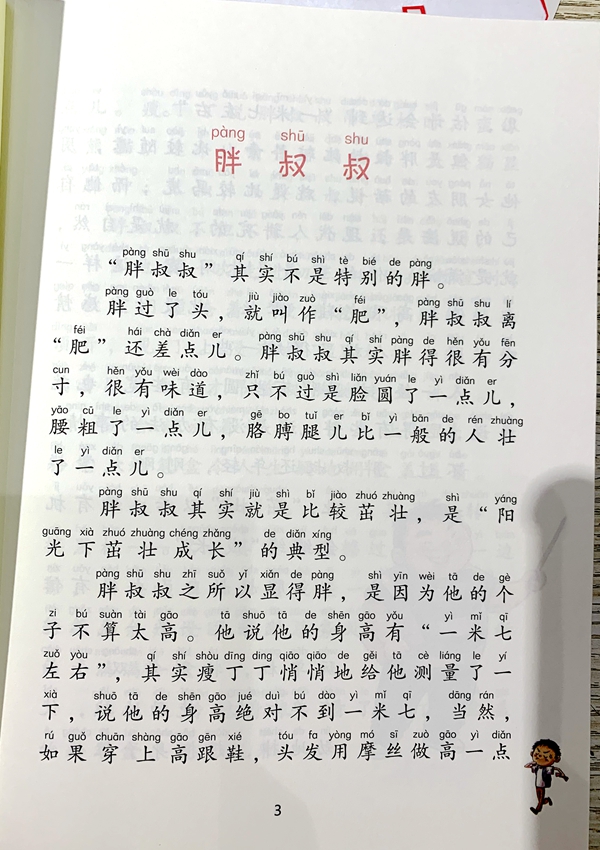 pàng shū shu
胖叔叔
pàng shū shu qí shí bú shì tè bié de pàng
“胖叔叔”其实不是特别的胖。
pàng guò le tóu jiù jiào zuò féi pàng shū shu lí
胖过了头，就叫作“肥”，胖叔叔离
féi hái chà diǎn er pàng shū shu qí shí pàng de hěn yǒu fēn
“肥”还差点儿。胖叔叔其实胖得很有分
cun hěn yǒu wèi dào zhǐ bú guò shì liǎn yuán le yì diǎn er
寸，很有味道，只不过是脸圆了一点儿，
yāo cū le yì diǎn er gē bo tuǐ er bǐ yì bān de rén zhuàng
腰粗了一点儿，胳膊腿儿比一般的人壮
le yì diǎn er
了一点儿。
pàng shū shu qí shí jiù shì bǐ jiào zhuó zhuàng shì yáng
胖叔叔其实就是比较茁壮，是“阳
guāng xià zhuó zhuàng chéng zhǎng de diǎn xíng
光下茁壮成长”的典型。
pàng shū shu zhī suǒ yǐ xiǎn de pàng shì yīn wèi tā de gè
胖叔叔之所以显得胖，是因为他的个
zi bú suàn tài gāo tā shuō tā de shēn gāo yǒu yì mǐ qī
子不算太高。他说他的身高有“一米七
zuǒ yòu qí shí shòu dīng ding qiāo qiāo de gěi tā cè liáng le yí
左右”，其实瘦丁丁悄悄地给他测量了一
xià shuō tā de shēn gāo jué duì bú dào yì mǐ qī dāng rán
下，说他的身高绝对不到一米七，当然，
rú guǒ chuān shàng gāo gēn xié tóu fa yòng mó sī zuò gāo yì diǎn
如果穿上高跟鞋，头发用摩丝做高一点
3